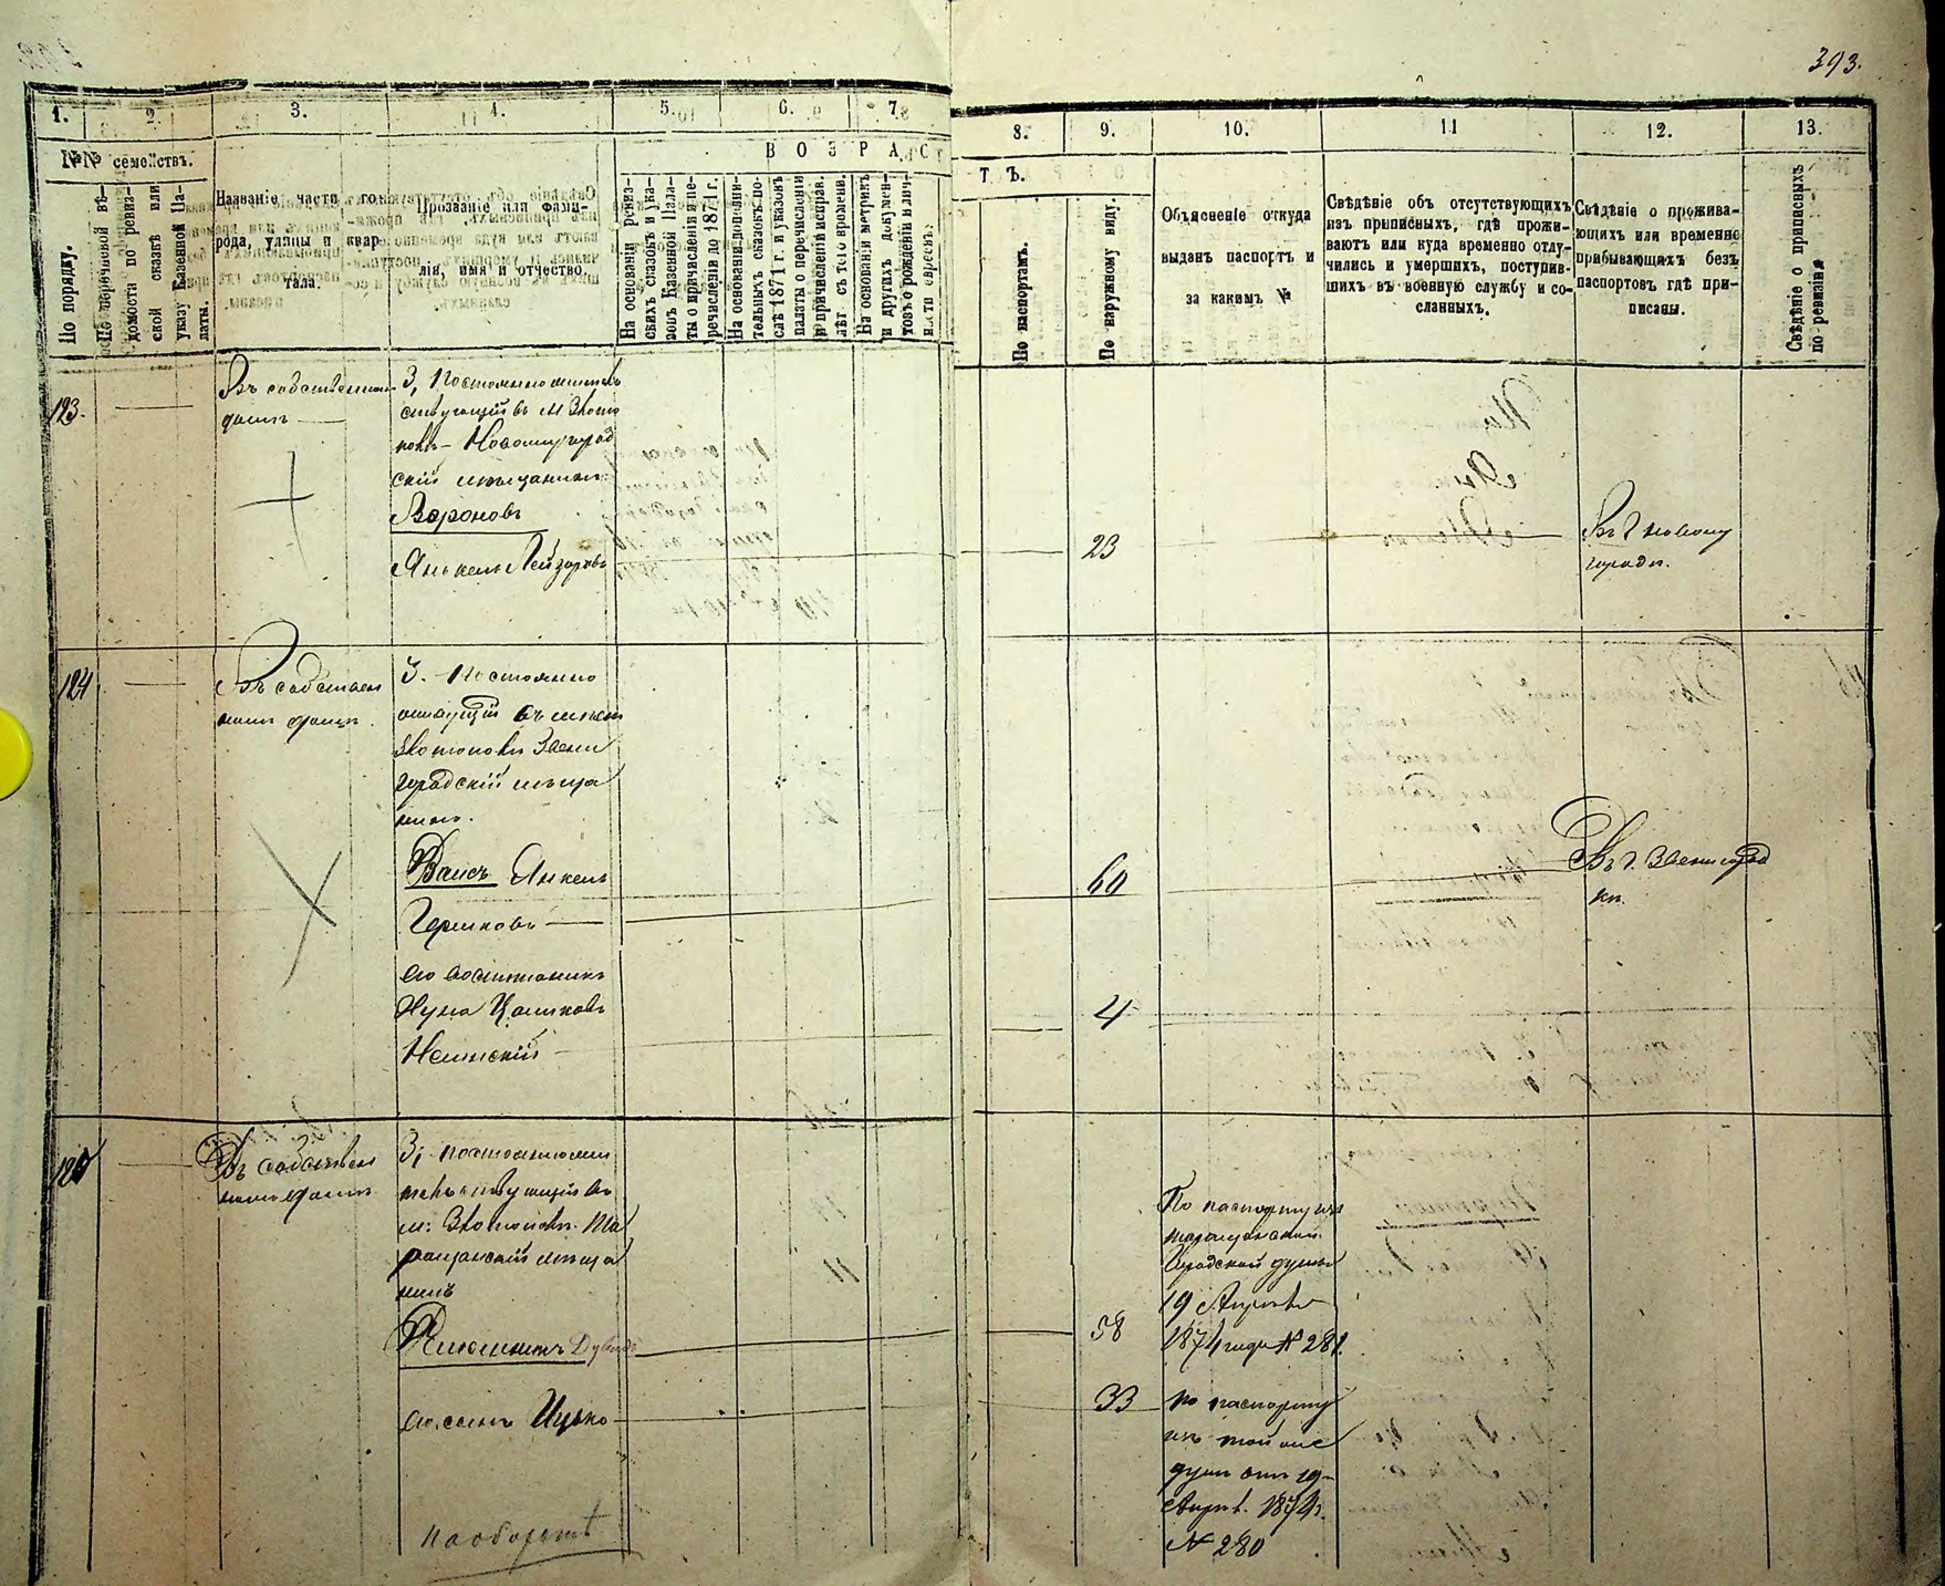 393.
1.
2.
3.
4.
5.
6.
7.
8.
9.
10.
11
12.
13.
№№ семействъ.
В О З Р А С
Т Ъ.
По порядку.
По перечневой вѣ-
домоста по ревиз-
ской сказкѣ или
указу Казенной Па-
латы.
Названіе части го-
рода, улицы и квар-
тала.
Прозваніе или фами-
лія, имя и отчество.
На основаніи ревиз-
скихъ сказокъ и ука-
зовъ Казенной Пала-
ты о причисленіи и пе-
речисленіи до 1871 г.
На основаніи дополни-
тельныхъ сказокъ по-
слѣ 1871 г. и указовъ
палаты о перечисленіи
и причисленіи исправ.
лѣт съ того времени.
На основаніи метрикъ
и другихъ докумен-
товъ о рожденіи и лич-
ности евреевъ.
По паспортамъ.
По наружному виду.
Объясненіе откуда
выданъ паспортъ и
за какимъ №
Свѣдѣніе объ отсутствующихъ
изъ приписныхъ, гдѣ прожи-
ваютъ или куда временно отлу-
чились и умершихъ, поступив-
шихъ въ военную службу и со-
сланныхъ.
Свѣдѣніе о прожива-
ющихъ или временно
прибывающихъ безъ
паспортовъ гдѣ при-
писаны.
Свѣдѣніе о приписныхъ
по ревизіи
123.
Въ собственномъ
домѣ
3, Постоянно жительст
ствующій въ м Звото
новкѣ
скій мѣщанинъ
Вороновъ
Янькель Лейзоровъ
23
Въ г новому
городѣ.
124
Въ собствен
номъ домѣ.
3. Постоянно
живущій въ мѣст
Звени
городскій мѣща
нинъ.
Вайсъ Янкель
Гершковъ
его воспитаникъ
Нухма
60
4
Въ г. Звенигород
кѣ.
125
Въ собствен
номъ домѣ
3, постоянно жи
тельствующій въ
м: Та
ращанскій мѣща
нинъ
58
По паспорту изъ
таращанской
Городской думы
19 Апрѣля
1874 года № 281.
его сынъ Ицько
33
по паспорту
изъ той же
думы отъ 19
Апрѣл. 1874 г.
№ 280
на оборотѣ